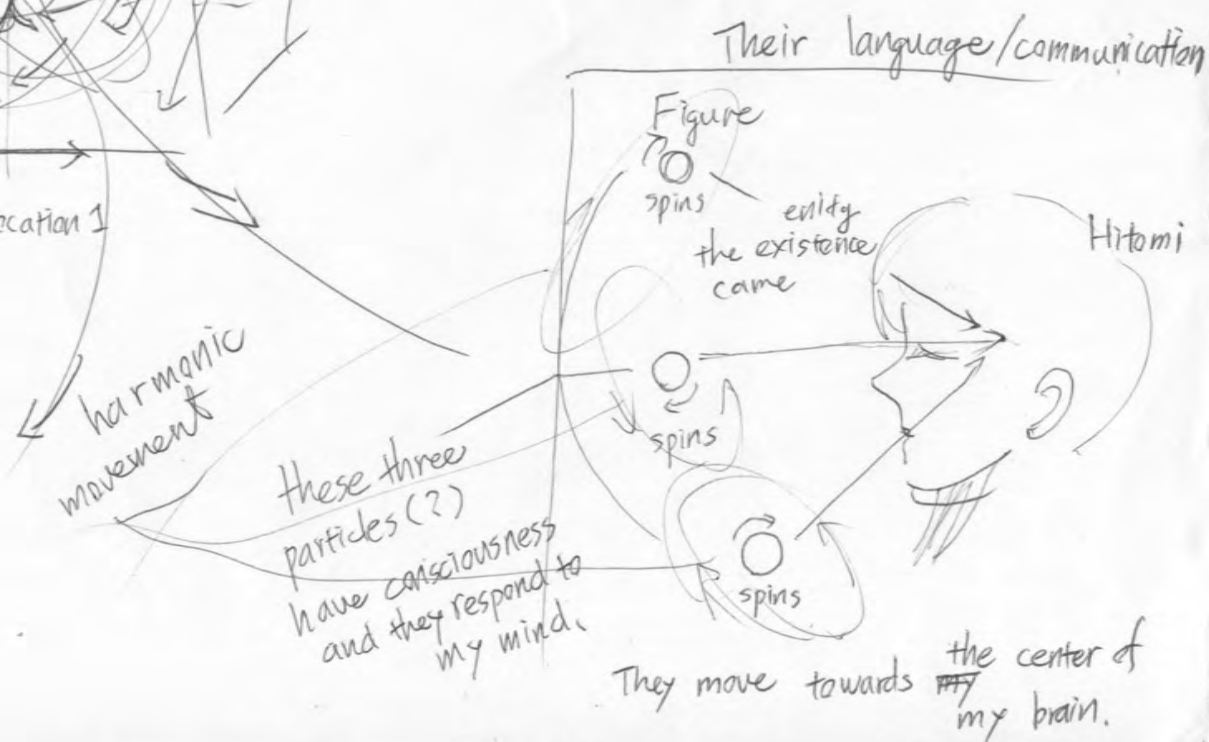 Their language/communication
Figure
spins
enity
the existence
came
Hitomi
ocation 1
harmonic
movement
spins
these three
particles (?)
have consciousness
and they respond to
my mind.
spins
They move towards the center of
my brain.